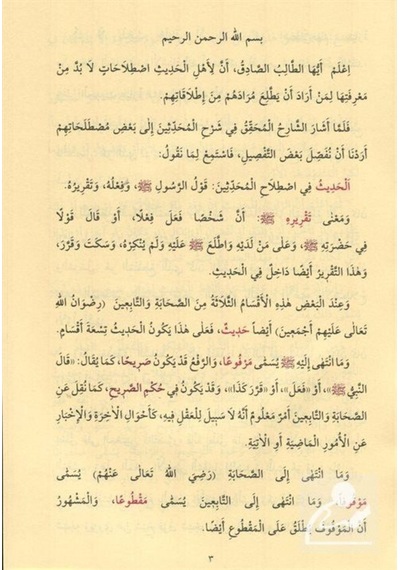 بسم الله الرحمن الرحيم
اِعْلَمْ أَيُّهَا الطَّالِبُ الصَّادِقُ، أَنَّ لِأَهْلِ الْحَدِيثِ اصْطِلَاحَاتٍ لَا بُدَّ مِنْ
مَعْرِفَتِهَا لِمَنْ أَرَادَ أَنْ يَطَّلِعَ مُرَادَهُمْ مِنْ إِطْلَاقَاتِهِمْ.
فَلَمَّا أَشَارَ الشَّارِحُ الْمُحَقِّقُ فِي شَرْحِ الْمُحَدِّثِينَ إِلَى بَعْضِ مُصْطَلَحَاتِهِمْ
أَرَدْنَا أَنْ نُفَصِّلَ بَعْضَ التَّفْصِيلِ، فَاسْتَمِعْ لِمَا نَقُولُ:
اَلْحَدِيثُ فِي اصْطِلَاحِ الْمُحَدِّثِينَ: قَوْلُ الرَّسُولِ ﷺ، وَفِعْلُهُ، وَتَقْرِيرُهُ.
وَمَعْنَى تَقْرِيرِهِ ﷺ: أَنَّ شَخْصًا فَعَلَ فِعْلًا، أَوْ قَالَ قَوْلًا
فِي حَضْرَتِهِ ﷺ، وَعَلَى مَنْ لَدَيْهِ وَاطَّلَعَ ﷺ عَلَيْهِ وَلَمْ يُنْكِرْهُ، وَسَكَتَ وَقَرَّرَ،
وَهٰذَا التَّقْرِيرُ أَيْضًا دَاخِلٌ فِي الْحَدِيثِ.
وَعِنْدَ الْبَعْضِ هٰذِهِ الْأَقْسَامُ الثَّلَاثَةُ مِنَ الصَّحَابَةِ وَالتَّابِعِينَ (رِضْوَانُ اللهِ
تَعَالَى عَلَيْهِمْ أَجْمَعِينَ) أَيْضًا حَدِيثٌ، فَعَلَى هٰذَا يَكُونُ الْحَدِيثُ تِسْعَةَ أَقْسَامٍ.
وَمَا انْتَهَى إِلَيْهِ ﷺ يُسَمَّى مَرْفُوعًا، وَالرَّفْعُ قَدْ يَكُونُ صَرِيحًا، كَمَا يُقَالُ: «قَالَ
النَّبِيُّ ﷺ»، أَوْ «فَعَلَ»، أَوْ «قَرَّرَ كَذَا»، وَقَدْ يَكُونُ فِي حُكْمِ الصَّرِيحِ، كَمَا نُقِلَ عَنِ
الصَّحَابَةِ وَالتَّابِعِينَ أَمْرٌ مَعْلُومٌ أَنَّهُ لَا سَبِيلَ لِلْعَقْلِ فِيهِ، كَأَحْوَالِ الْآخِرَةِ وَالْإِخْبَارِ
عَنِ الْأُمُورِ الْمَاضِيَةِ أَوِ الْآتِيَةِ.
وَمَا انْتَهَى إِلَى الصَّحَابَةِ (رَضِيَ اللهُ تَعَالَى عَنْهُمْ) يُسَمَّى
مَوْقُوفًا، وَمَا انْتَهَى إِلَى التَّابِعِينَ يُسَمَّى مَقْطُوعًا، وَالْمَشْهُورُ
أَنَّ الْمَوْقُوفَ يُطْلَقُ عَلَى الْمَقْطُوعِ أَيْضًا.
٣